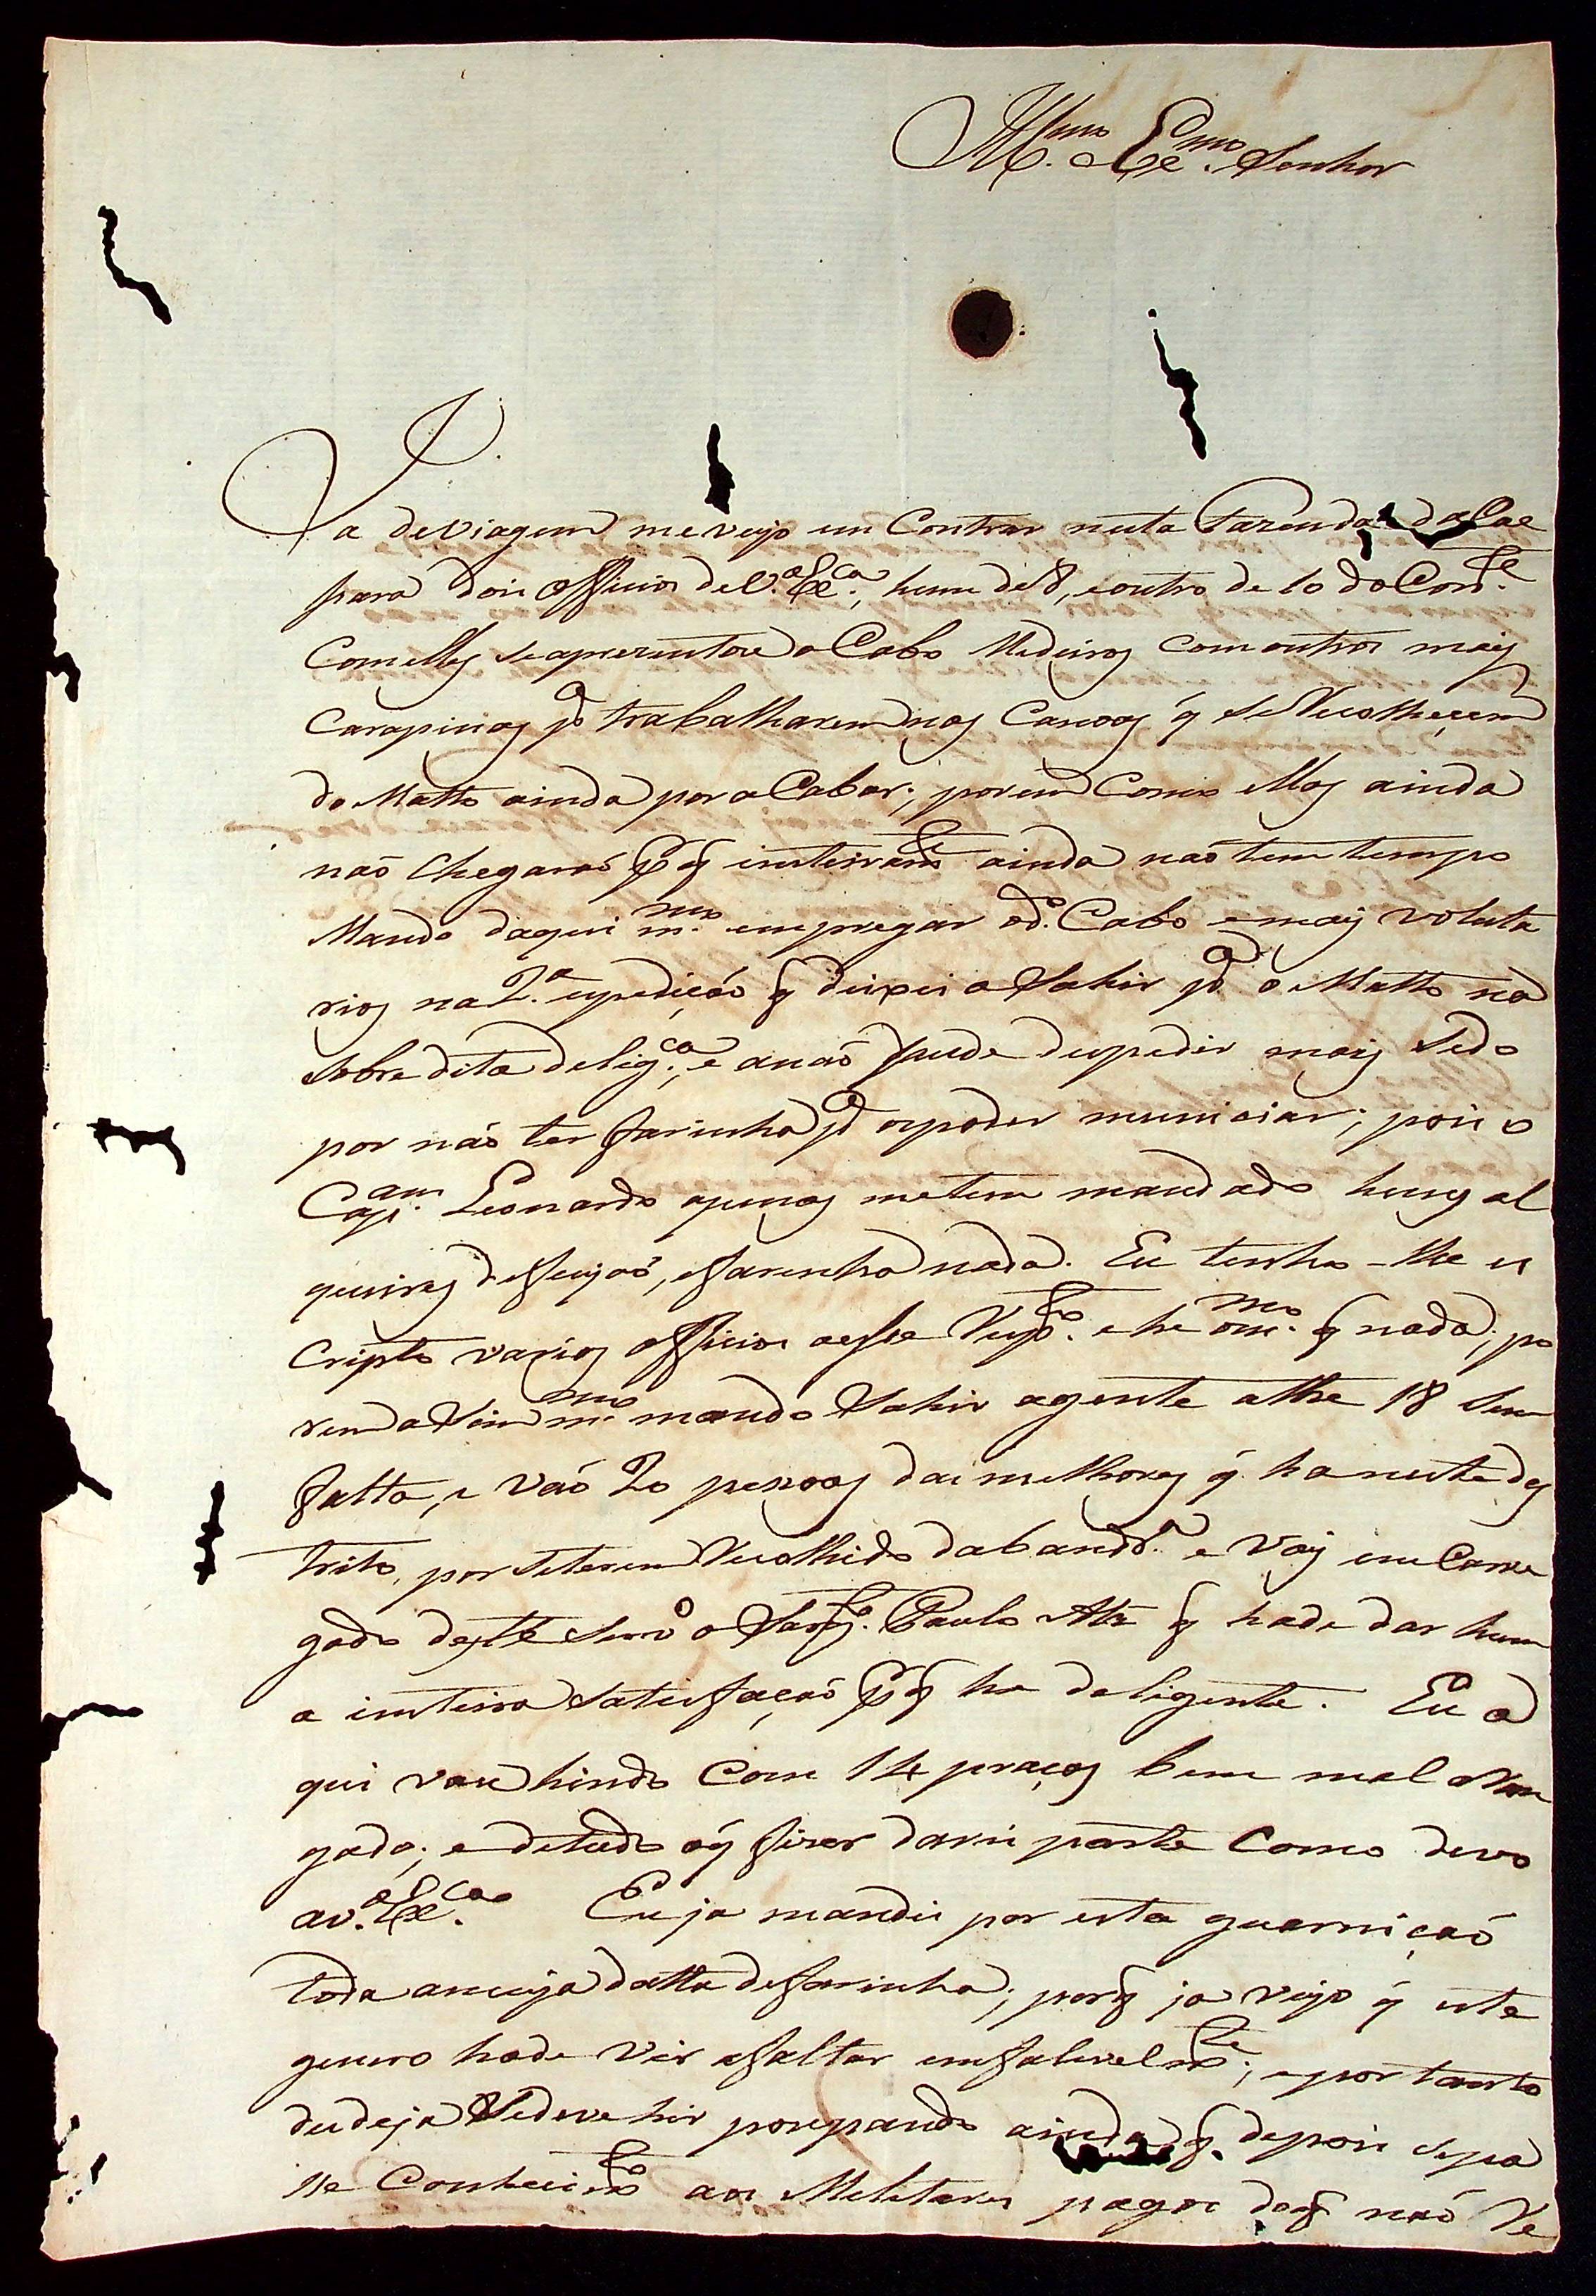 Ill.mo Ex.mo Senhor
Ja deviagem mevejo en Contrar nesta Fazenda da Cae
para dois officios deV.a Ex.ca, hum de 8, eoutro de 10 do Corr.te
Comelles seaprezentou o Cabo Medeiros Comoutros mais
Carapinas p.a trabalharem nas Canoas q̃ se Recolherem
do Matto ainda por aCabar; porem Como ellas ainda
naõ Chegaraõ p.q inteiram.te ainda naõ tem tempo
Mando daqui m.mo empregar od.o Cabo emais voluta
rios na 2.a expediçaõ q̃ deixei a Sahir p.a o Matto na
sobredita delig.ca, e anaõ pude despedir mais Sedo
por naõ ter farinha p.a ospoder municiar; pois o
Cap.am Leonardo apenas metem mandado huns al
queires defeijaõ, efarinha nada. Eu tenho-lhe es
Cripto varios officios aesse Resp.to ehe om.mo q̃ nada; po
rem aSim m.mo mando Sahir agente athe 18 Sem
falta, e vaõ 20 pessoas das melhores q̃ ha neste des
trito, por Seterem Recolhido dabandr.a e vay emCarre
gado deste Serv.o o Sarg.to Paulo Alz q̃ hade dar hum
a inteira Satisfaçaõ p.q he deligente. Eu a
qui vou hindo Com 14 praças bem mal
gado; e detudo oq̃ fizer darei parte Como devo
aV.a Ex.ca Eu ja mandei por esta guarniçaõ
toda ameija datta defarinha; porq̃ ja vejo q̃ este
genero hade vir afaltar emfalivelm.te; eportanto
desdeja Sedeve hir poupando ainda q̃ depois sepa
se Conhecim.to aos Melitares pagos doq̃ naõ Re